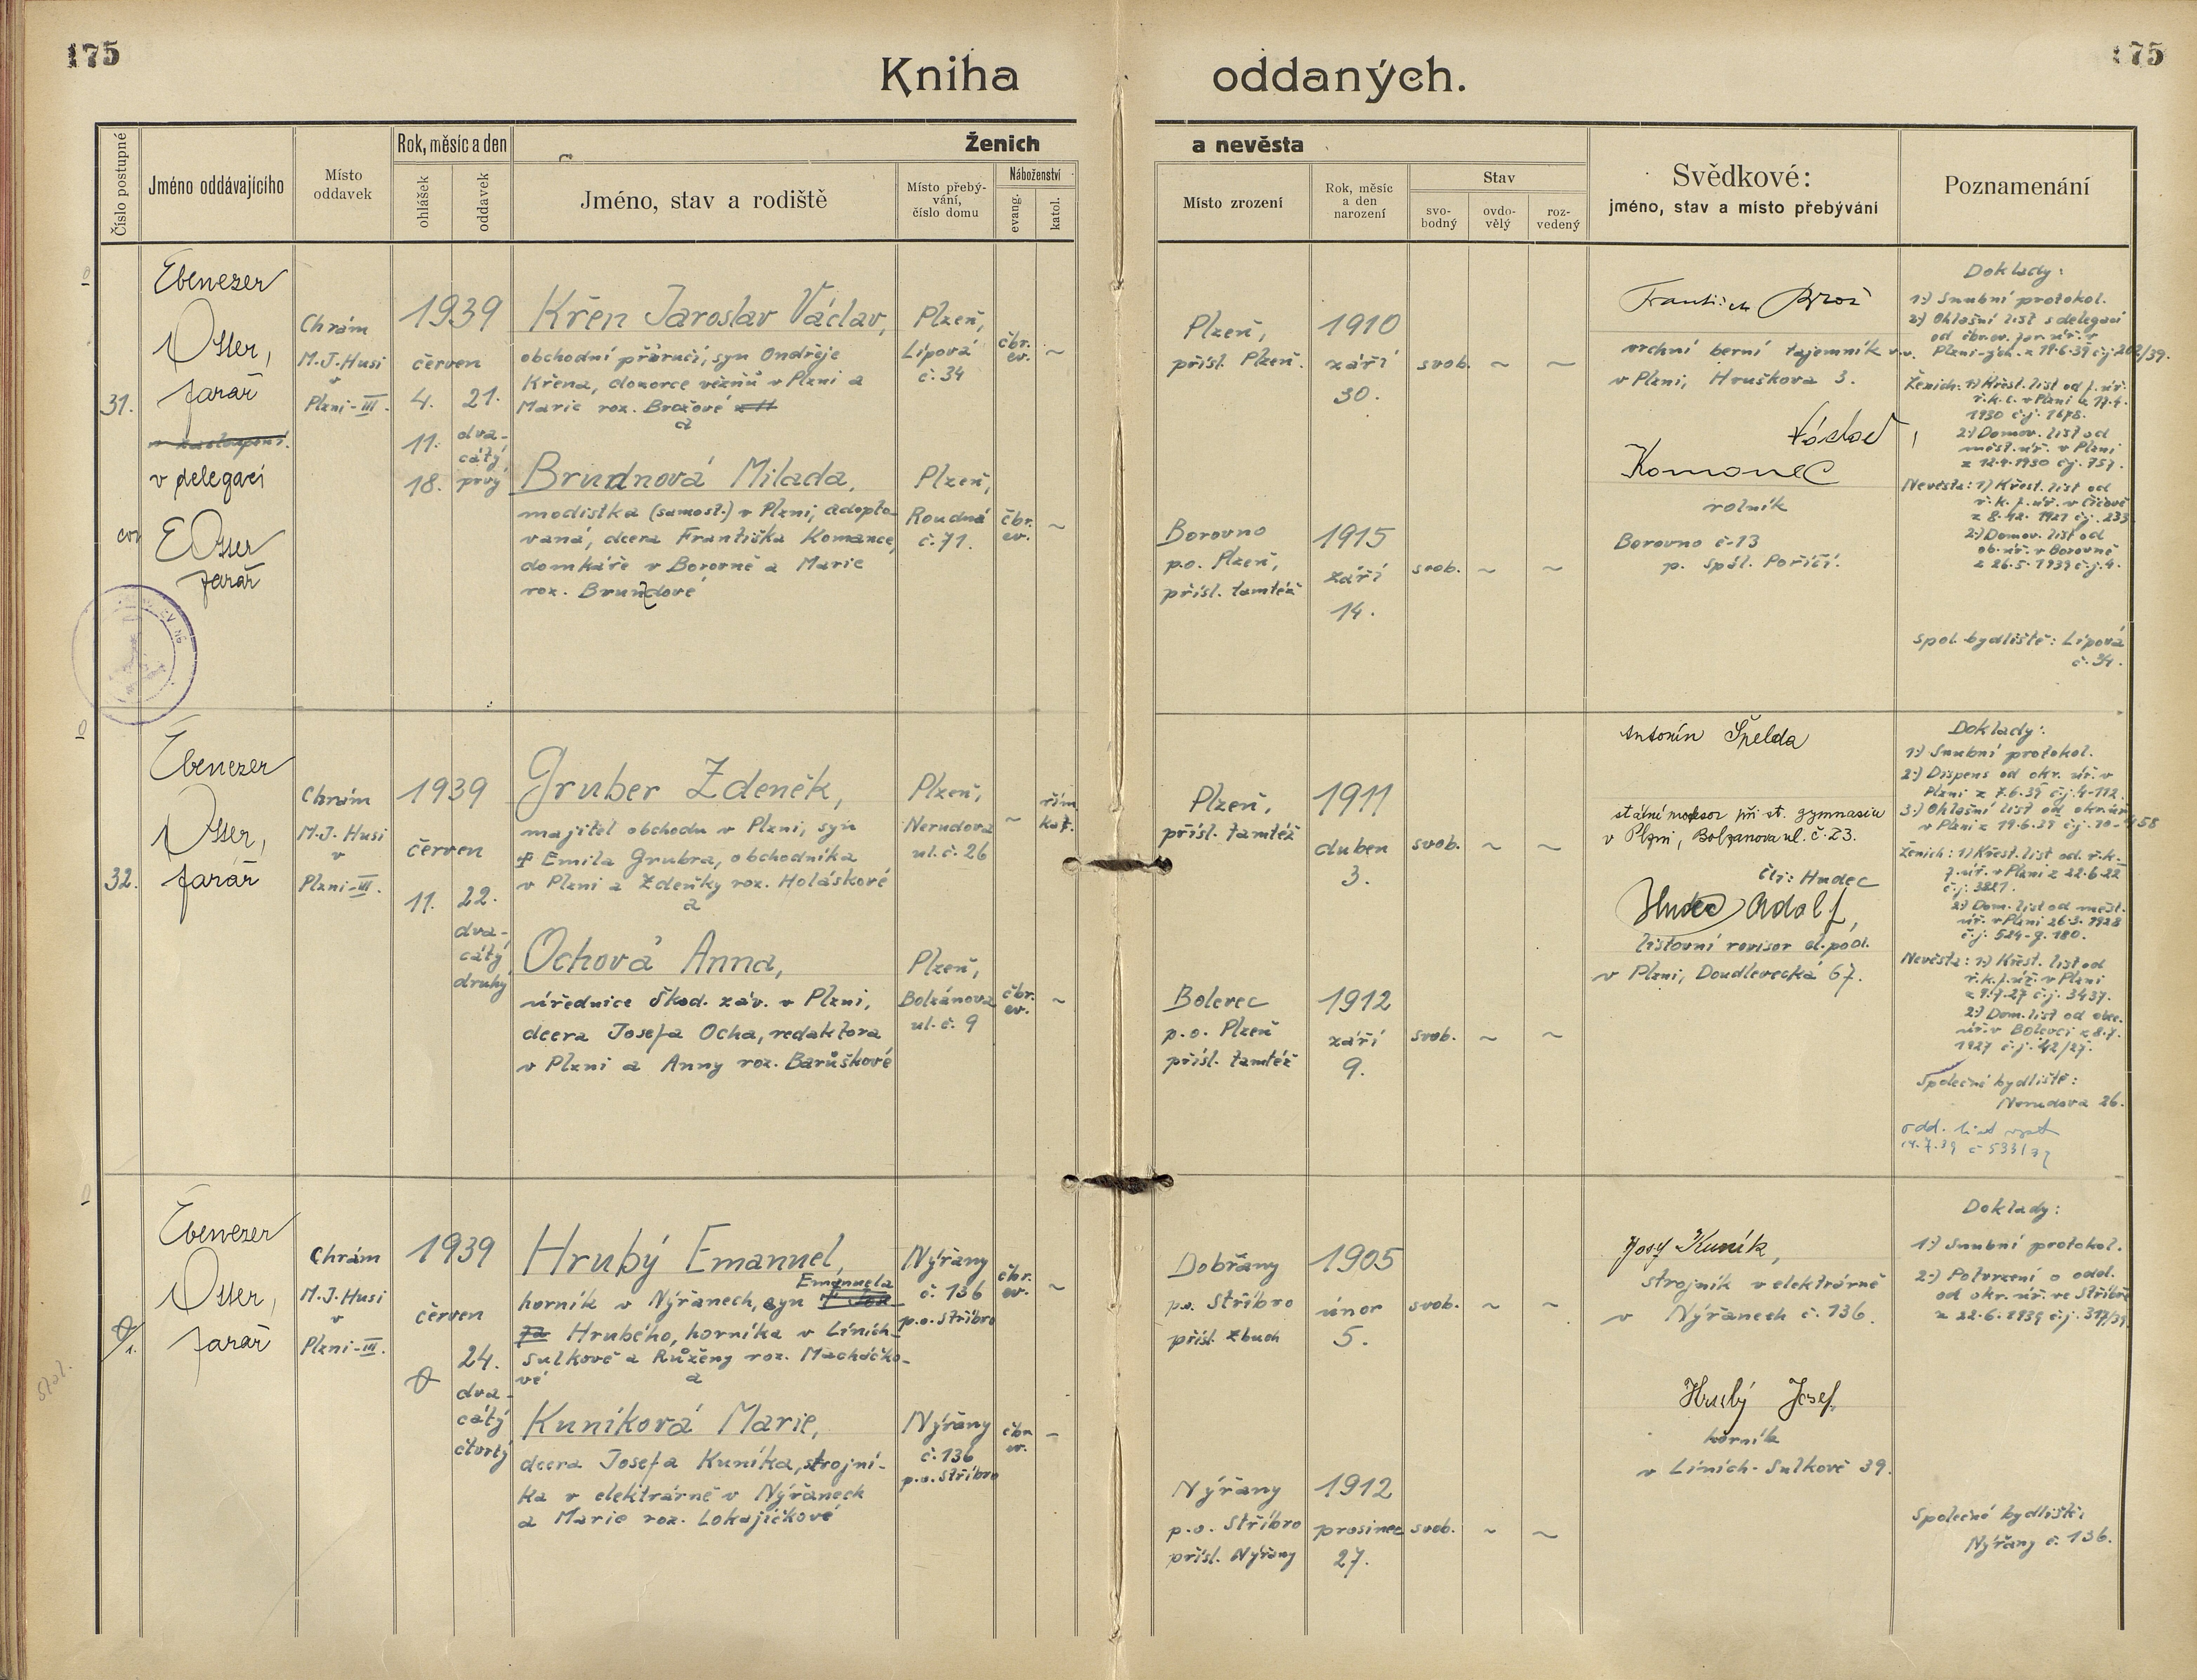 175
175
Kniha oddaných.
Číslo postupné
Jméno oddávajícího
Místo
oddavek
Rok, měsíc a den
ohlášek
oddavek
Ženich
a nevěsta
Jméno, stav a rodiště
Místo přebý-
vání,
číslo domu
Náboženství
evang.
katol.
Místo zrození
Rok, měsíc
a den
narození
Stav
svo-
bodný
ovdo-
vělý
roz-
vedený
Svědkové:
jméno, stav a místo přebývání
Poznamenání
31.
Ebenezer
Otter,
farář
v zastoupení.
v delegaci
E Otter
farář
Chrám
M.J. Husi
v
Plzni-III.
1939
červen
4.
11.
18.
21.
dva-
cátý
prvý
Křen Jaroslav Václav,
obchodní příručí, syn Ondřeje
Křena, dozorce vězňů v Plzni a
Marie roz. Brožové
a
Plzeň,
Lípová
č. 34
čbr.
ev.
~
Brudnová Milada,
modistka (samost.) v Plzni, adopto-
vaná, dcera Františka Komance,
domkáře v Borovně a Marie
roz. Brundové
Plzeň,
Roudná
č. 71.
čbr.
ev.
~
Plzeň,
přísl. Plzeň.
1910
září
30.
svob.
~
~
Borovno
p.o. Plzeň,
přísl. tamtéž
1915
září
14.
svob.
~
~
František Brož
vrchní berní tajemník v.v.
v Plzni, Hruškova 3.
Václav
Komanec
rolník
Borovno č-13
p. Spál. Poříčí.
Doklady:
1.) Snubní protokol.
2.) Ohlašní list s delegací
od čbr.ev. far. úř. v
Plzni-zách. z 19.6.39 čj. 202/39.
Ženich: 1.) Křest. list od f. úř.
ř.k.c. v Plzni z 17.4.
1930 č.j. 1678.
2.) Domov. list od
měst. úř. v Plzni
z 12.4.1930 čj. 757.
Nevěsta: 1.) Křest. list od
ř.k.f. úř. v Číčově
z 8.12. 1927 čj. 233
2.) Domov. list od
ob. úř. v Borovně
z 26.5.1939 č.j. 4.
spol. bydliště: Lípová
č. 34.
32.
Ebenezer
Otter,
farář
Chrám
M.J. Husi
v
Plzni-III.
1939
červen
11.
22.
dva-
cátý
druhý
Gruber Zdeněk,
majitel obchodu v Plzni, syn
Emila Grubra, obchodníka
v Plzni a Zdeňky roz. Holáskové
a
Plzeň,
Nerudova
ul. č. 26
~
řím.
kat.
Ochová Anna,
úřednice Škod. záv. v Plzni,
dcera Josefa Ocha, redaktora
v Plzni a Anny roz. Barůškové
Plzeň,
Bolzánova
ul. č. 9
čbr.
ev.
~
Plzeň,
přísl. tamtéž
1911
duben
3.
svob.
~
~
Bolevec
p.o. Plzeň
přísl. tamtéž
1912
září
9.
svob.
~
~
Antonín Špelda
státní profesor při st. gymnasiu
v Plzni, Bolzanova ul. č. 23.
čti: Hudec
Hudec Adolf,
listovní revisor el. pod.
v Plzni, Doudlevecká 67.
Doklady:
1.) Snubní protokol.
2.) Dispens od okr. úř. v
Plzni z 7.6.39 č.j. 4-112.
3.) Ohlašní list od okr. úř.
v Plzni z 19.6.39
Ženich: 1.) Křest. list od. ř.k.
f. úř. v Plzni z 22.6.22
č.j. 3827.
2.) Dom. list od měst.
úř. v Plzni 26.3.1928
č.j. 524-g. 180.
Nevěsta: 1.) Křest. list od
ř.k.f. úř. v Plzni
z 9.7.27 č.j. 3437.
2.) Dom. list od obec.
úř. v Bolevci z 8.7.
1927 č.j. 42/27.
Společné bydliště:
Nerudova 26.
odd. list
14.7.39
Ebenezer
Otter,
farář
Chrám
M.J. Husi
v
Plzni-III.
1939
červen
24.
dva-
cátý
čtvrtý
Hrubý Emanuel,
Emanuela
horník v Nýřanech, syn
Hrubého, horníka v Líních-
Sulkově a Růženy roz. Macháčko-
vé
a
Nýřany
č. 136
p.o. Stříbro
čbr.
ev.
~
Kuníková Marie,
dcera Josefa Kuníka, strojní-
ka v elektrárně v Nýřanech
a Marie roz. Lokajíčkové
Nýřany
č. 136
p.o. Stříbro
čbr.
ev.
~
Dobřany
p.o. Stříbro
přísl. Zbuch
1905
únor
5.
svob.
~
~
Nýřany
p.o. Stříbro
přísl. Nýřany
1912
prosinec
27.
svob.
~
~
Josef Kuník,
strojník v elektrárně
v Nýřanech č. 136.
Hrubý Josef
horník
v Líních-Sulkově 39.
Doklady:
1.) Snubní protokol.
2.) Potvrzení o odd.
od okr. úř. ve Stříbře
z 22.6.1939
Společné bydliště:
Nýřany č. 136.